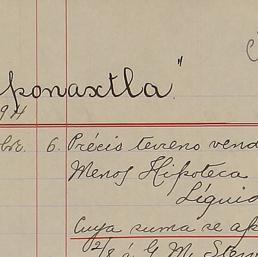 ponaxtla"
94
bre. 6. Précio terreno vend
Menos Hipoteca
Líquid
Cuya suma se ap
2/8 á G. M. Stew